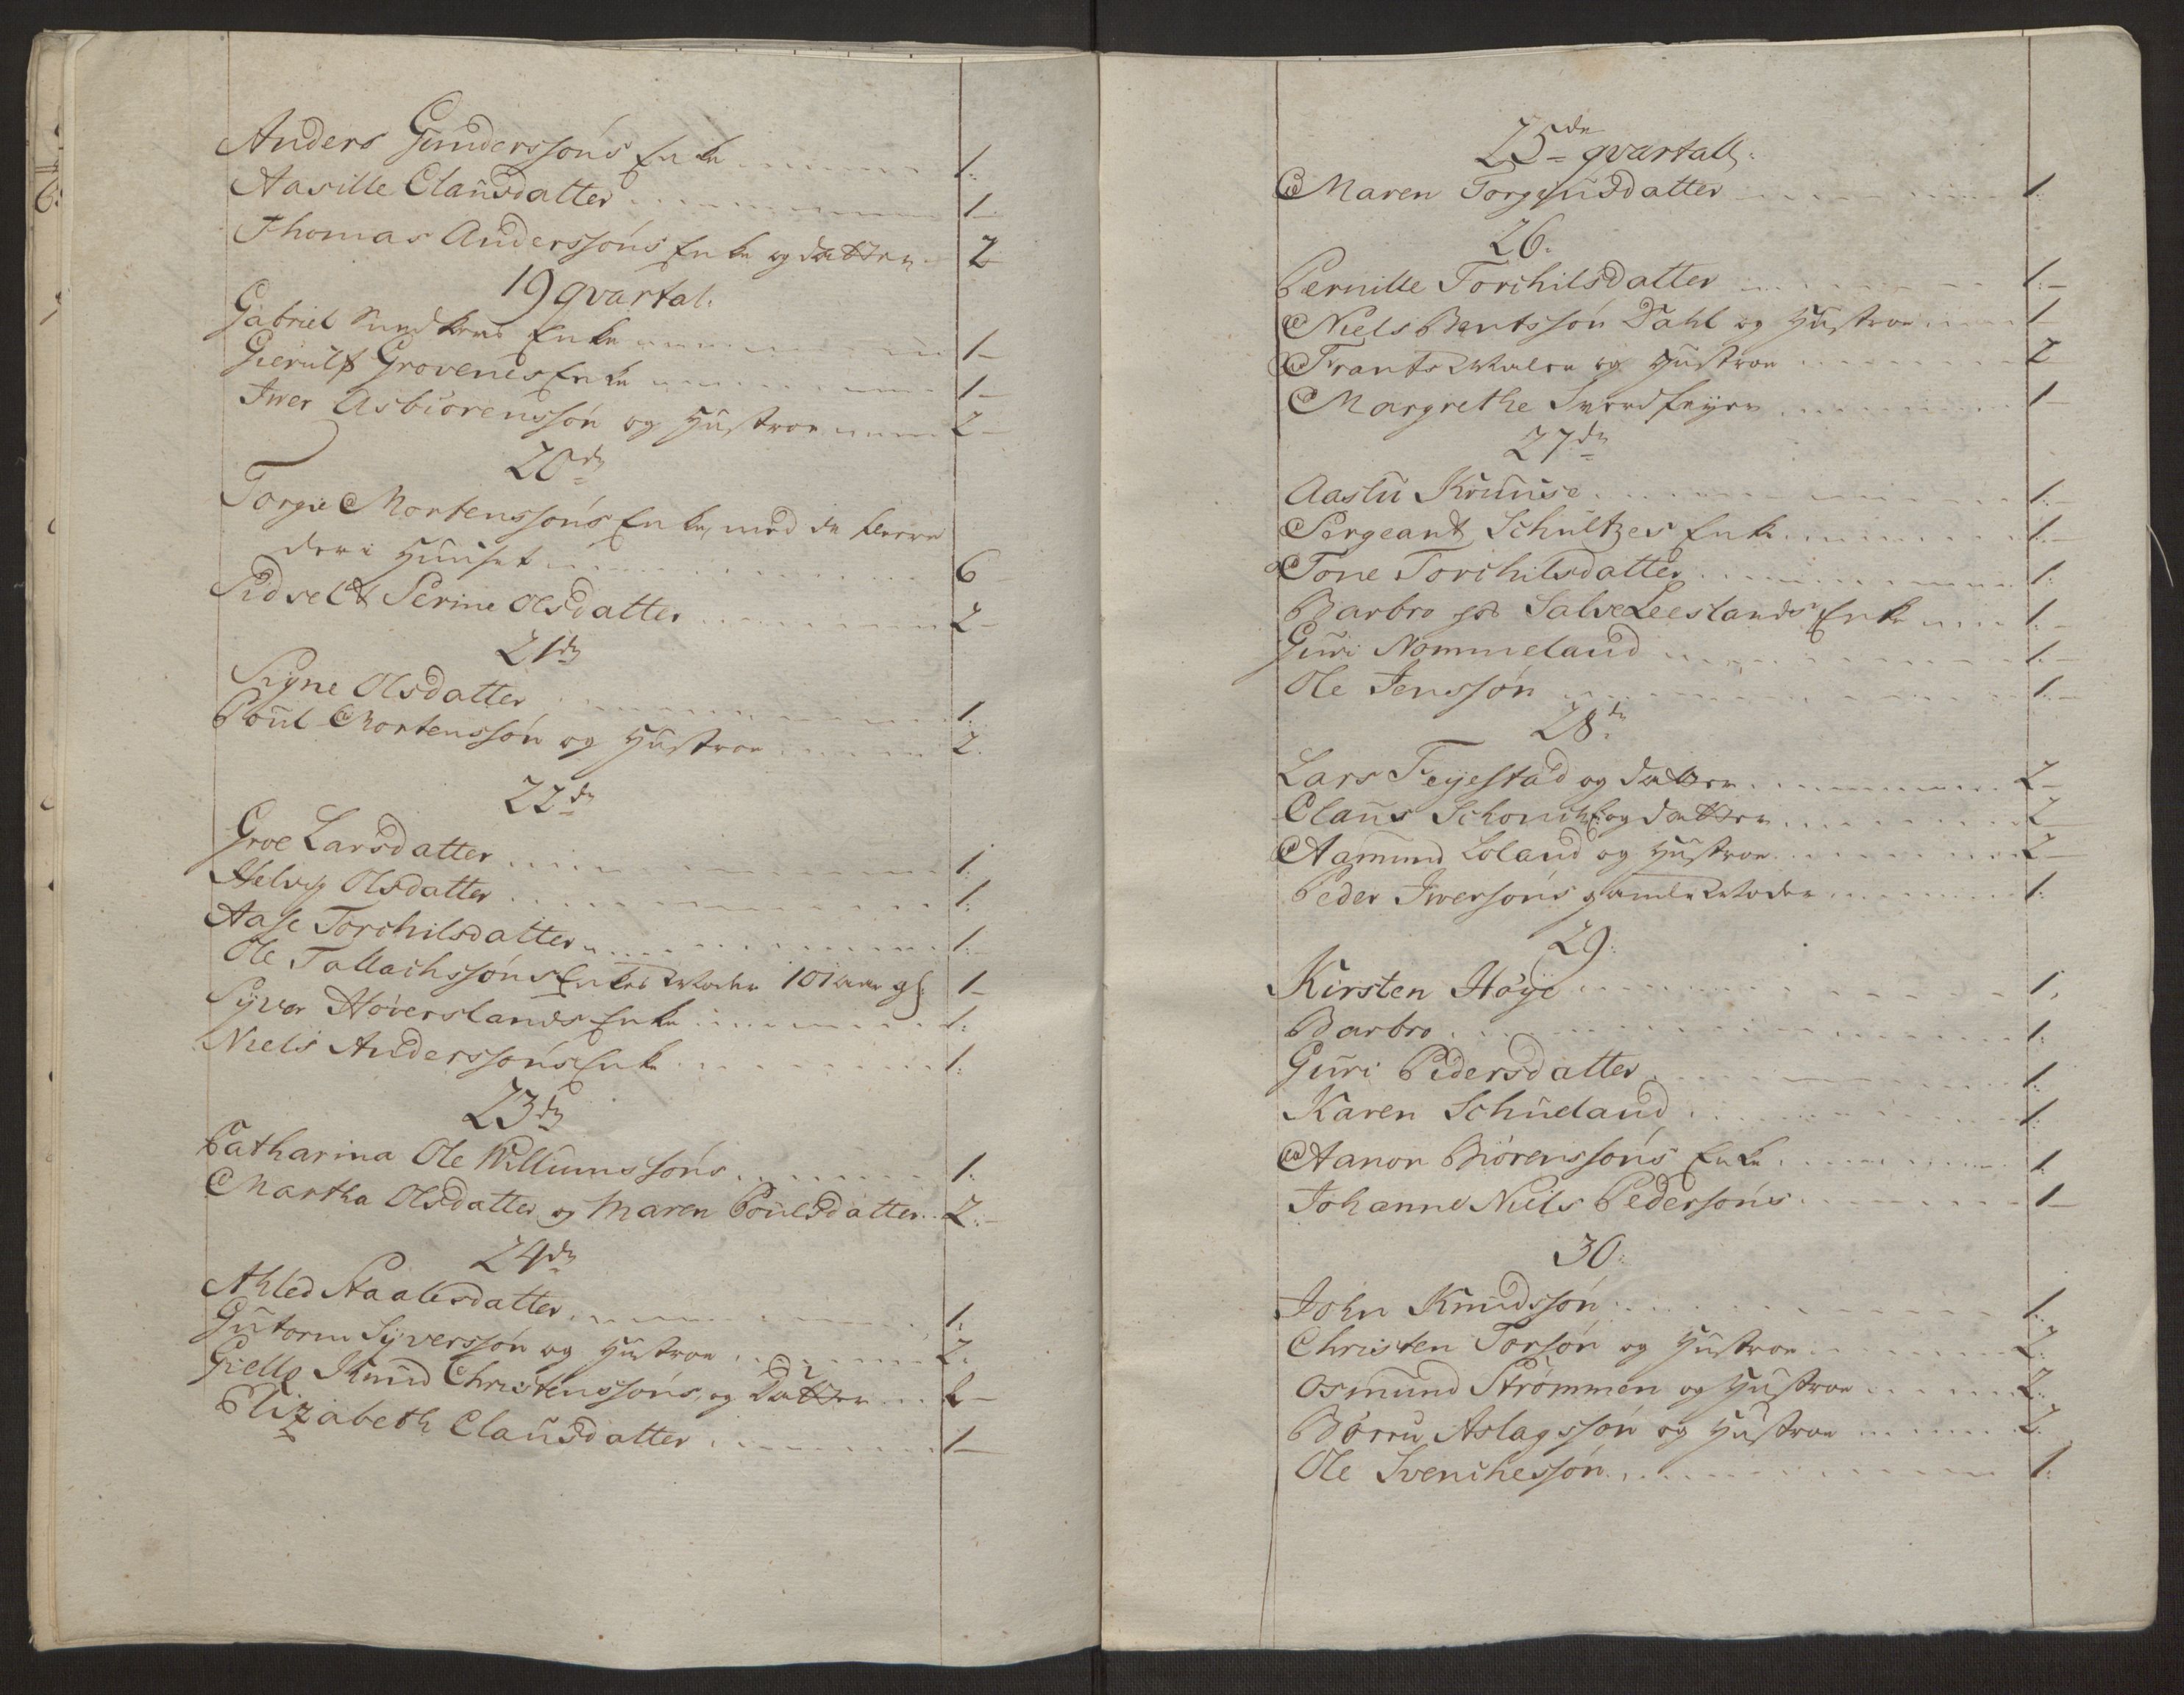 Anders Gunderssøns Enke 1.
Aasille Clausdatter 1
Thomas Anderssøns Enke og datter 2
19 qvartal.
Gabriel Enke 1
Gierulf Grovenes Enke 1
Iwer Asbiørenssøn og Hustroe 2
20de
Torgie Mortenssøns Enke, med de fleere
der i Huuset 6
Sidsel & Serine Olsdatter 2
21de
Signe Olsdatter 1.
Poul Mortenssøn og Hustroe 2.
22de
Groe Larsdatter 1.
Helvig Olsdatter 1.
Aase Torchilsdatter 1.
Ole Tallachssøns Enkes Moder 101 aar gl: 1
Syver Høverslands Enke 1.
Niels Anderssøns Enke 1.
23de
Catharina Ole Willumssøns 1.
Martha Olsdatter og Maren Poulsdatter 2.
24de
Ahled Staalesdatter 1.
Gutorm Syverssøn og Hustroe 2.
Giello Knud Christenssøns, og Datter 2
Elizabeth Clausdatter 1
25de qvartall:
Maren Torgiusdatter 1.
26.
Pernille Torchilsdatter 1.
Niels Berntssøn Dahl og Hustroe 1
Frants og Hustroe 2
Margrethe Sverdfeyer 1
27de
Aaslu Kruuse 1.
Sergeant Schultzes Enke 1.
Tone Torchilsdatter 1.
Barbro Salve Leeslands Enke 1.
Guri Nommeland 1.
Ole Jenssøn 1.
28de
Lars Feyestad og datter 2
Claus og datter 2
Aamund Loland og Hustroe 2
Peder Iwersøns gamle Moder 1.
29.
Kirsten Høye 1.
Barbro 1.
Guri Pedersdatter 1.
Karen Schueland 1.
Aanon Biørenssøns Enke 1.
Johanne Niels Pedersøns 1
30.
John Knudssøn 1.
Christen Torsøn og Hustroe 2.
Osmund Strømmen og Hustroe 2.
Børru Aslagssøn og Hustroe 2.
Ole Svenchessøn 1.